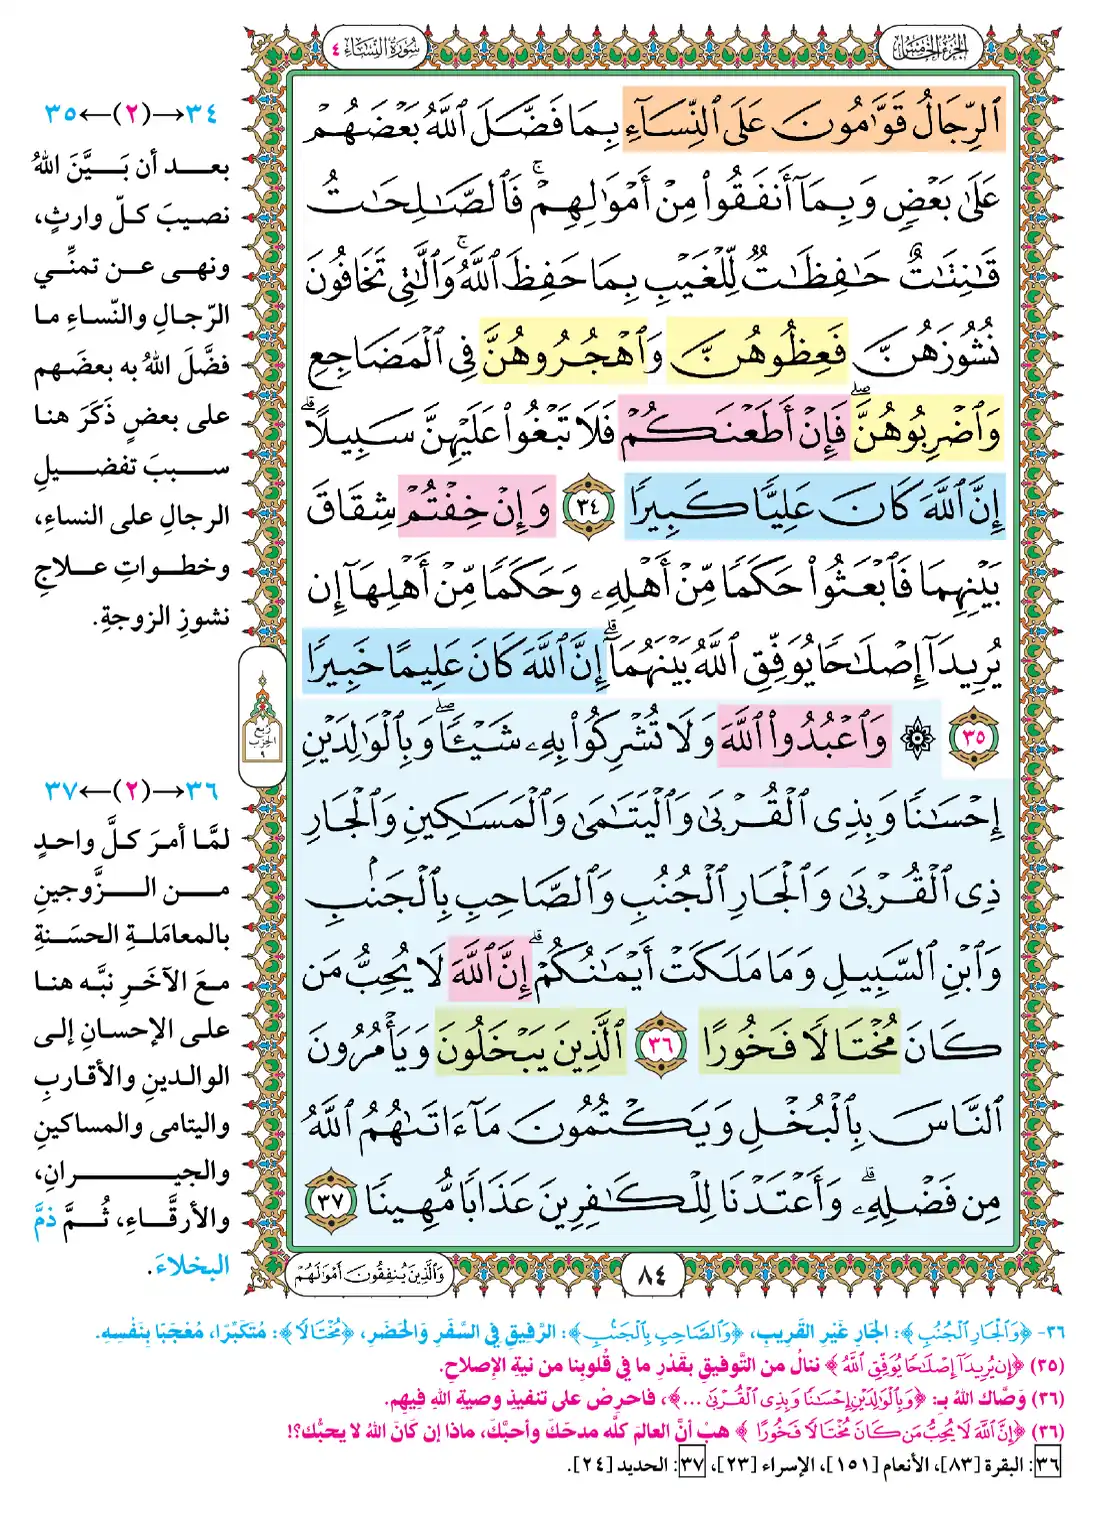 الجزء الخامس
سورة النساء ٤
ٱلرِّجَالُ قَوَّٰمُونَ عَلَى ٱلنِّسَآءِ بِمَا فَضَّلَ ٱللَّهُ بَعْضَهُمْ
عَلَىٰ بَعْضٍ وَبِمَآ أَنفَقُوا۟ مِنْ أَمْوَٰلِهِمْ ۚ فَٱلصَّٰلِحَٰتُ
قَٰنِتَٰتٌ حَٰفِظَٰتٌ لِّلْغَيْبِ بِمَا حَفِظَ ٱللَّهُ ۚ وَٱلَّٰتِى تَخَافُونَ
نُشُوزَهُنَّ فَعِظُوهُنَّ وَٱهْجُرُوهُنَّ فِى ٱلْمَضَاجِعِ
وَٱضْرِبُوهُنَّ ۖ فَإِنْ أَطَعْنَكُمْ فَلَا تَبْغُوا۟ عَلَيْهِنَّ سَبِيلًا ۗ
إِنَّ ٱللَّهَ كَانَ عَلِيًّا كَبِيرًا ٣٤ وَإِنْ خِفْتُمْ شِقَاقَ
بَيْنِهِمَا فَٱبْعَثُوا۟ حَكَمًا مِّنْ أَهْلِهِۦ وَحَكَمًا مِّنْ أَهْلِهَآ إِن
يُرِيدَآ إِصْلَٰحًا يُوَفِّقِ ٱللَّهُ بَيْنَهُمَآ ۗ إِنَّ ٱللَّهَ كَانَ عَلِيمًا خَبِيرًا
٣٥ ۞ وَٱعْبُدُوا۟ ٱللَّهَ وَلَا تُشْرِكُوا۟ بِهِۦ شَيْـًٔا ۖ وَبِٱلْوَٰلِدَيْنِ
إِحْسَٰنًا وَبِذِى ٱلْقُرْبَىٰ وَٱلْيَتَٰمَىٰ وَٱلْمَسَٰكِينِ وَٱلْجَارِ
ذِى ٱلْقُرْبَىٰ وَٱلْجَارِ ٱلْجُنُبِ وَٱلصَّاحِبِ بِٱلْجَنۢبِ
وَٱبْنِ ٱلسَّبِيلِ وَمَا مَلَكَتْ أَيْمَٰنُكُمْ ۗ إِنَّ ٱللَّهَ لَا يُحِبُّ مَن
كَانَ مُخْتَالًا فَخُورًا ٣٦ ٱلَّذِينَ يَبْخَلُونَ وَيَأْمُرُونَ
ٱلنَّاسَ بِٱلْبُخْلِ وَيَكْتُمُونَ مَآ ءَاتَىٰهُمُ ٱللَّهُ
مِن فَضْلِهِۦ ۗ وَأَعْتَدْنَا لِلْكَٰفِرِينَ عَذَابًا مُّهِينًا ٣٧
٨٤
وَٱلَّذِينَ يُنفِقُونَ أَمْوَٰلَهُمْ
٣٤→(٢)←٣٥
بعد أن بَيَّنَ اللهُ
نصيبَ كلّ وارثٍ،
ونهى عن تمنِّي
الرّجالِ والنّساءِ ما
فضَّلَ اللهُ به بعضَهم
على بعضٍ ذَكَرَ هنا
سببَ تفضيلِ
الرجالِ على النساءِ،
وخطواتِ علاجِ
نشوزِ الزوجةِ.
ربع
الحزب
٩
٣٦→(٢)←٣٧
لمَّا أمرَ كلَّ واحدٍ
من الزَّوجينِ
بالمعاملةِ الحسَنةِ
معَ الآخَرِ نبَّه هنا
على الإحسانِ إلى
الوالدينِ والأقاربِ
واليتامى والمساكينِ
والجيرانِ،
والأرقَّاءِ، ثُمَّ ذمَّ
البخلاءَ.
٣٦- ﴿وَٱلْجَارِ ٱلْجُنُبِ﴾: الجَارِ غَيْرِ القَرِيبِ، ﴿وَٱلصَّاحِبِ بِٱلْجَنۢبِ﴾: الرَّفِيقِ فِي السَّفَرِ وَالحَضَرِ، ﴿مُخْتَالًا﴾: مُتَكَبِّرًا، مُعْجَبًا بِنَفْسِهِ.
(٣٥) ﴿إِن يُرِيدَآ إِصْلَٰحًا يُوَفِّقِ ٱللَّهُ﴾ ننالُ من التَّوفيقِ بقَدْرِ ما في قُلوبِنا من نيةِ الإصلاحِ.
(٣٦) وَصَّاك اللهُ بـِ: ﴿وَبِٱلْوَٰلِدَيْنِ إِحْسَٰنًا وَبِذِى ٱلْقُرْبَىٰ ...﴾، فاحرِصْ على تنفيذِ وصيةِ اللهِ فيهِم.
(٣٦) ﴿إِنَّ ٱللَّهَ لَا يُحِبُّ مَن كَانَ مُخْتَالًا فَخُورًا﴾ هبْ أنَّ العالمَ كلَّه مدحَكَ وأحبَّكَ، ماذا إن كَانَ اللهُ لا يحبُّك؟!
٣٦: البقرة [٨٣]، الأنعام [١٥١]، الإسراء [٢٣]، ٣٧: الحديد [٢٤].